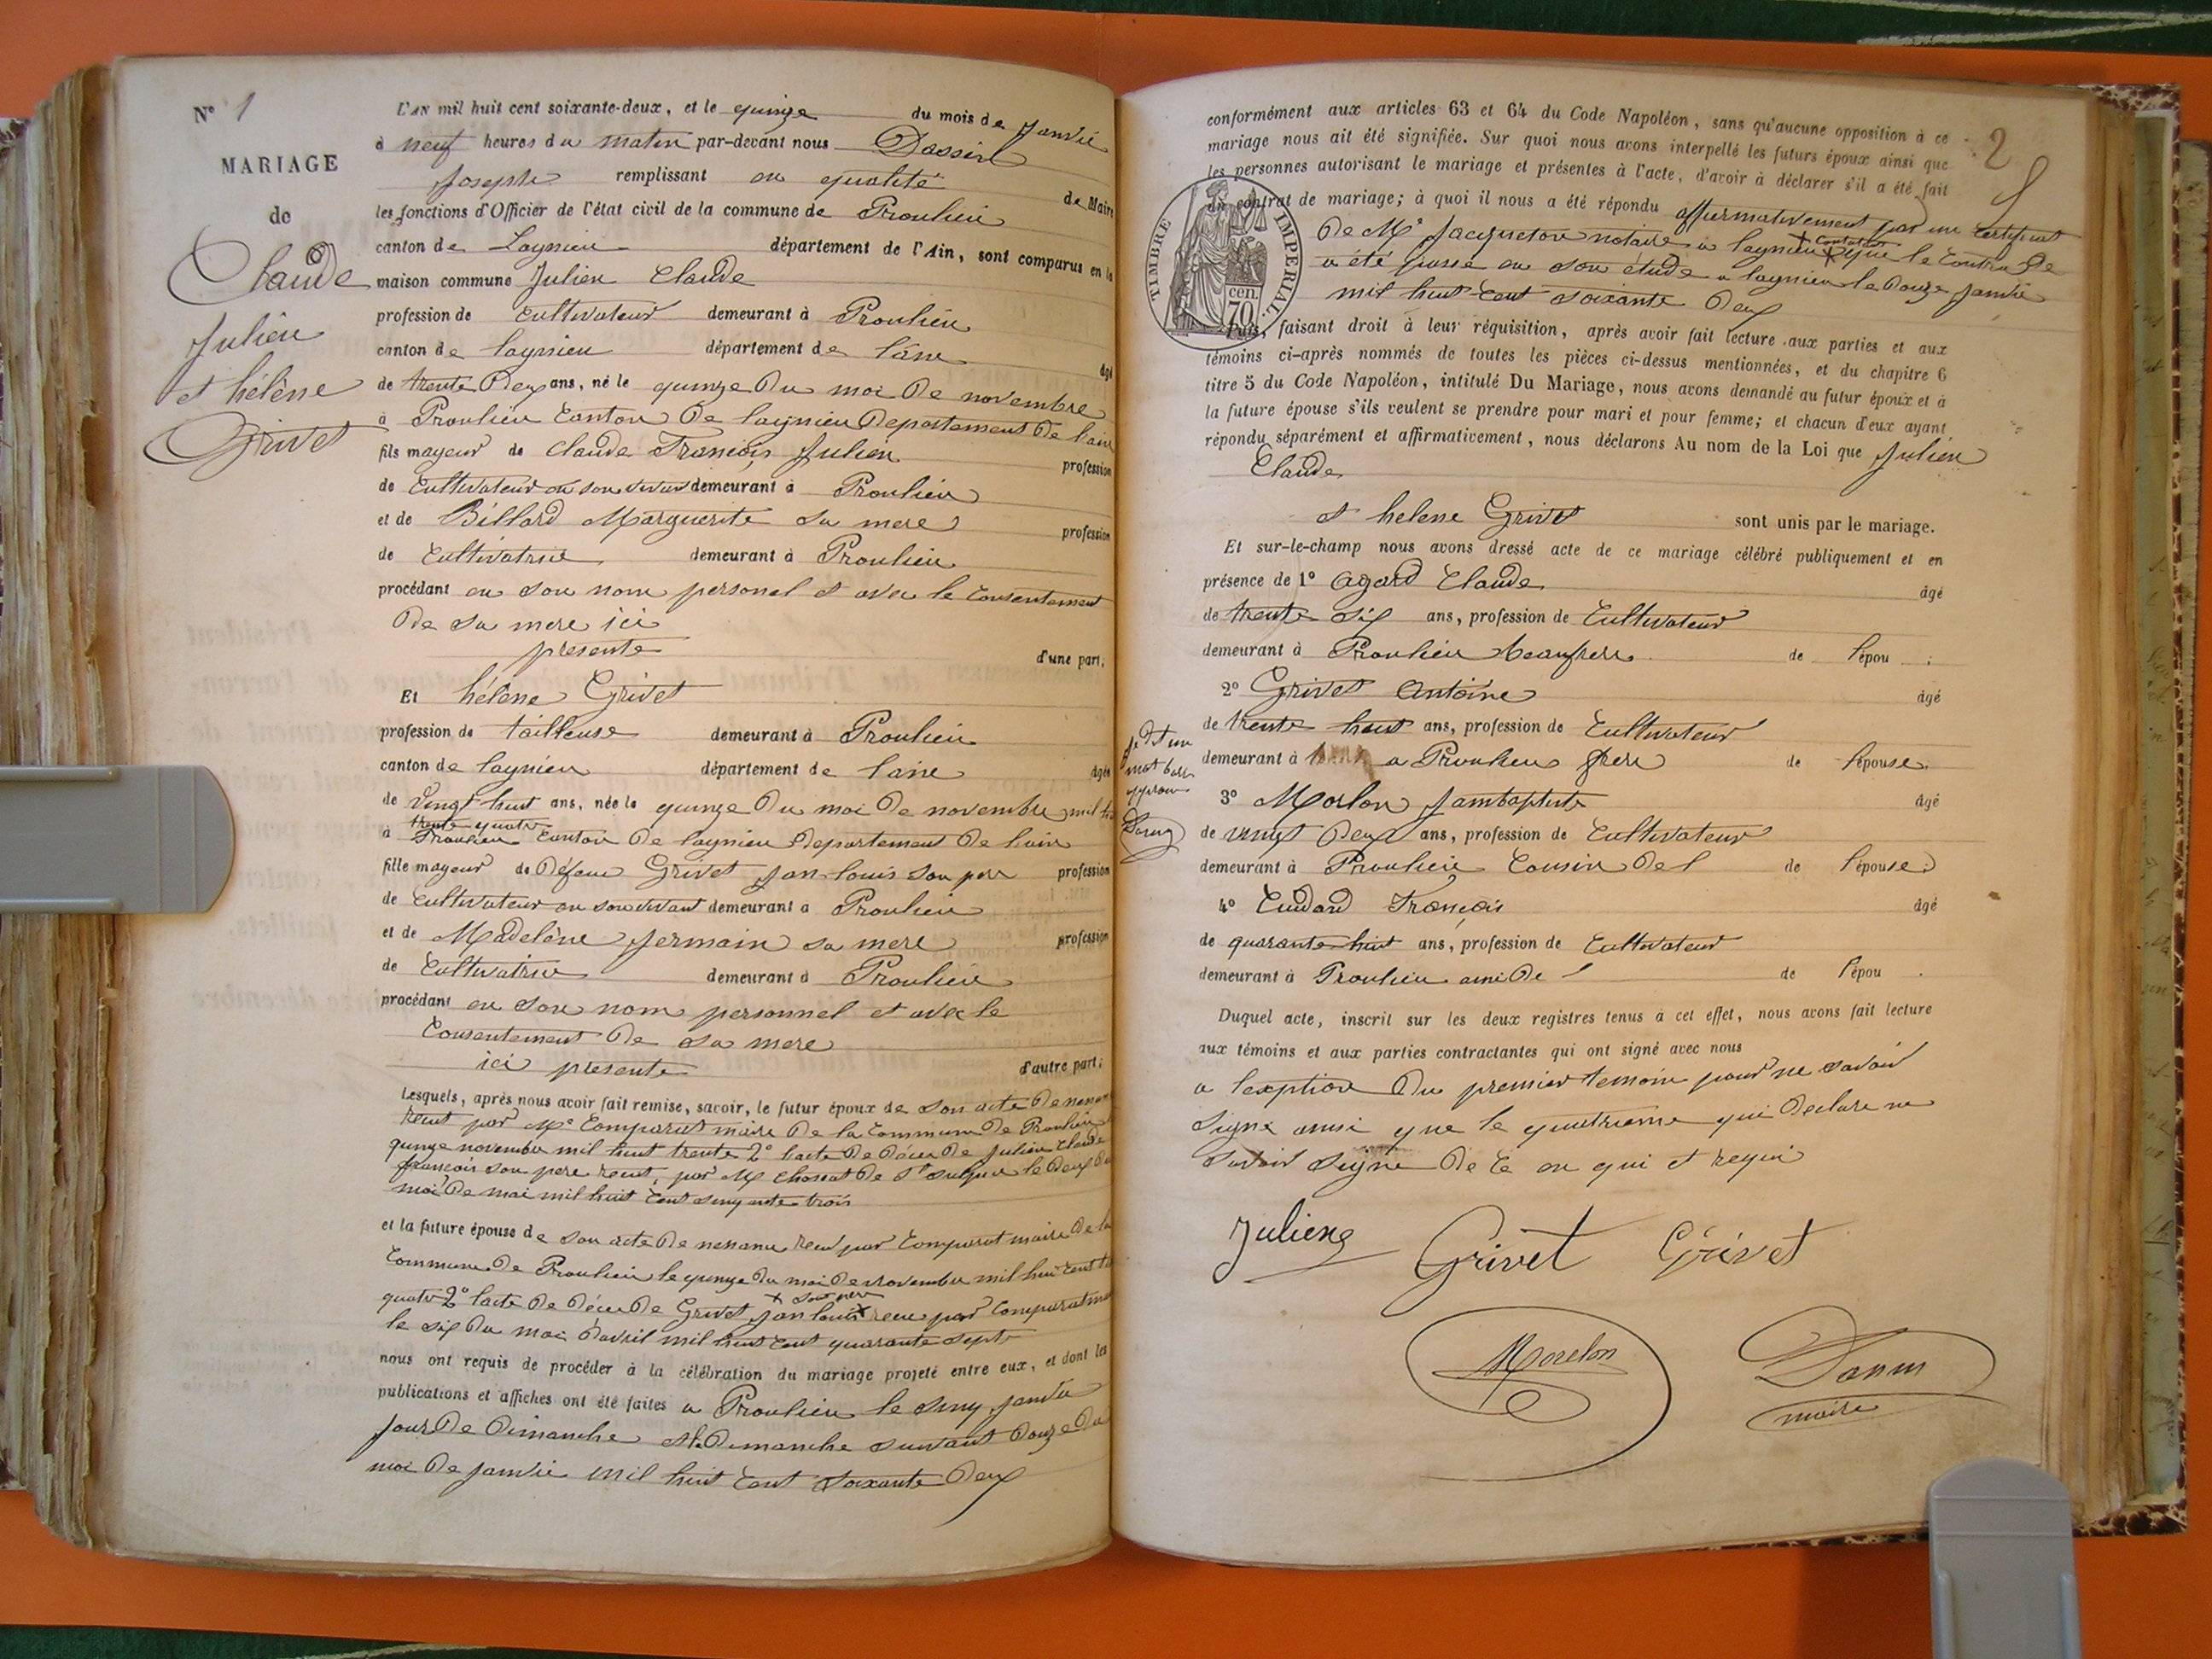 N° 1
MARIAGE
de
Claude
Julien
et hélène
Grivet
L'AN mil huit cent soixante-deux, et le quinze du mois de Janvié
à neuf heures du matin par-devant nous
Joseph remplissant en qualité de Maire
les fonctions d'Officier de l'état civil de la commune de Proulieu
canton de Lagnieu département de l'Ain, sont comparus en la
maison commune Julien Claude
profession de Cultivateur demeurant à Proulieu
canton de lagnieu département de l'ain âgé
de trente Deux ans, né le quinze Du moi De novembre
à Proulieu Canton De lagnieu Departement De l'ain
fils mayeur de Claude François Julien profession
de Cultivateur en son vivan demeurant à Proulieu
et de Billard Marguerite sa mere profession
de Cultivatrice demeurant à Proulieu
procédant en son nom personel et avec le Consentement
De sa mere ici
presente d'une part,
Et hélène Grivet
profession de tailleuse demeurant à Proulieu
canton de lagnieu département de l'ain âgée
de Vingt huit ans, née le quinze Du moi De novembre mil
trente quatre
à Proulieu Canton De lagnieu Departement De l'ain
fille mayeur de Défeu Grivet Jan louis son pere profession
de Cultivateur en son vivant demeurant à Proulieu
et de Madelène Jermain sa mere profession
de Cultivatrice demeurant à Proulieu
procédant en son nom personnel et avec le
Consentement De sa mere
ici presente d'autre part;
Lesquels, après nous avoir fait remise, savoir, le futur époux de son acte De
recut par Mr Comparat maire De la Commune De Proulieu
quinze novembre mil huit trente 2° l'acte De Déces De Julien Claude
françois son pere recut, par Mr Chossat De St Sulpice le Deux Du
moi De mai mil huit Cent sinquante trois
et la future épouse de son acte De nessance recu par Comparat maire De la
Commune De Proulieu le quinze Du moi De novembre mil hui Cent
quatre 2° l'acte De Déces De Grivet Jan louis x recu par Comparat
x son pere
le six Du moi D'avril mil huit Cent quarante sept
nous ont requis de procéder à la célébration du mariage projeté entre eux, et dont les
publications et affiches ont été faites a Proulieu le sinq Janvié
Jour De Dimanche et le Dimanche suivant Douze Du
moi De Janvié mil huit Cent Soixante Deux
2
conformément aux articles 63 et 64 du Code Napoléon, sans qu'aucune opposition à ce
mariage nous ait été signifiée. Sur quoi nous avons interpellé les futurs époux ainsi que
les personnes autorisant le mariage et présentes à l'acte, d'avoir à déclarer s'il a été fait
un contrat de mariage; à quoi il nous a été répondu affirmativement par un Certificat
De Mr Jacqueson notaire a lagnieu x que le Contra De
a été passé en son étude a lagnieu le Douze Janvié
mil huit Cent soixante Deux
TIMBRE IMPERIAL.
cen.
70
Puis, faisant droit à leur réquisition, après avoir fait lecture aux parties et aux
témoins ci-après nommés de toutes les pièces ci-dessus mentionnées, et du chapitre 6
titre 5 du Code Napoléon, intitulé Du Mariage, nous avons demandé au futur époux et à
la future épouse s'ils veulent se prendre pour mari et pour femme; et chacun d'eux ayant
répondu séparément et affirmativement, nous déclarons Au nom de la Loi que Julien
Claude
et helene Grivet sont unis par le mariage.
Et sur-le-champ nous avons dressé acte de ce mariage célébré publiquement et en
présence de 1° Agard Claude âgé
de trente six ans, profession de Cultivateur
demeurant à Proulieu beaufrere de l'épou ;
2° Grivet Antoine âgé
de trente huit ans, profession de Cultivateur
demeurant à a Proulieu frere de l'épouse.
3° Morlon Jambaptiste âgé
de vingt Deux ans, profession de Cultivateur
demeurant à Proulieu Cousin De l de l'épouse;
4° François âgé
de quarante huit ans, profession de Cultivateur
demeurant à Proulieu ami De l de l'épou .
Duquel acte, inscrit sur les deux registres tenus à cet effet, nous avons fait lecture
aux témoins et aux parties contractantes qui ont signé avec nous
a l'exption Du premier temoin pour ne savoir
signe ainsi que le quatrieme qui Declare ne
savoir signe De Ce en qui et requi
mot
Julien
Grivet
Grivet
Morelon
maire